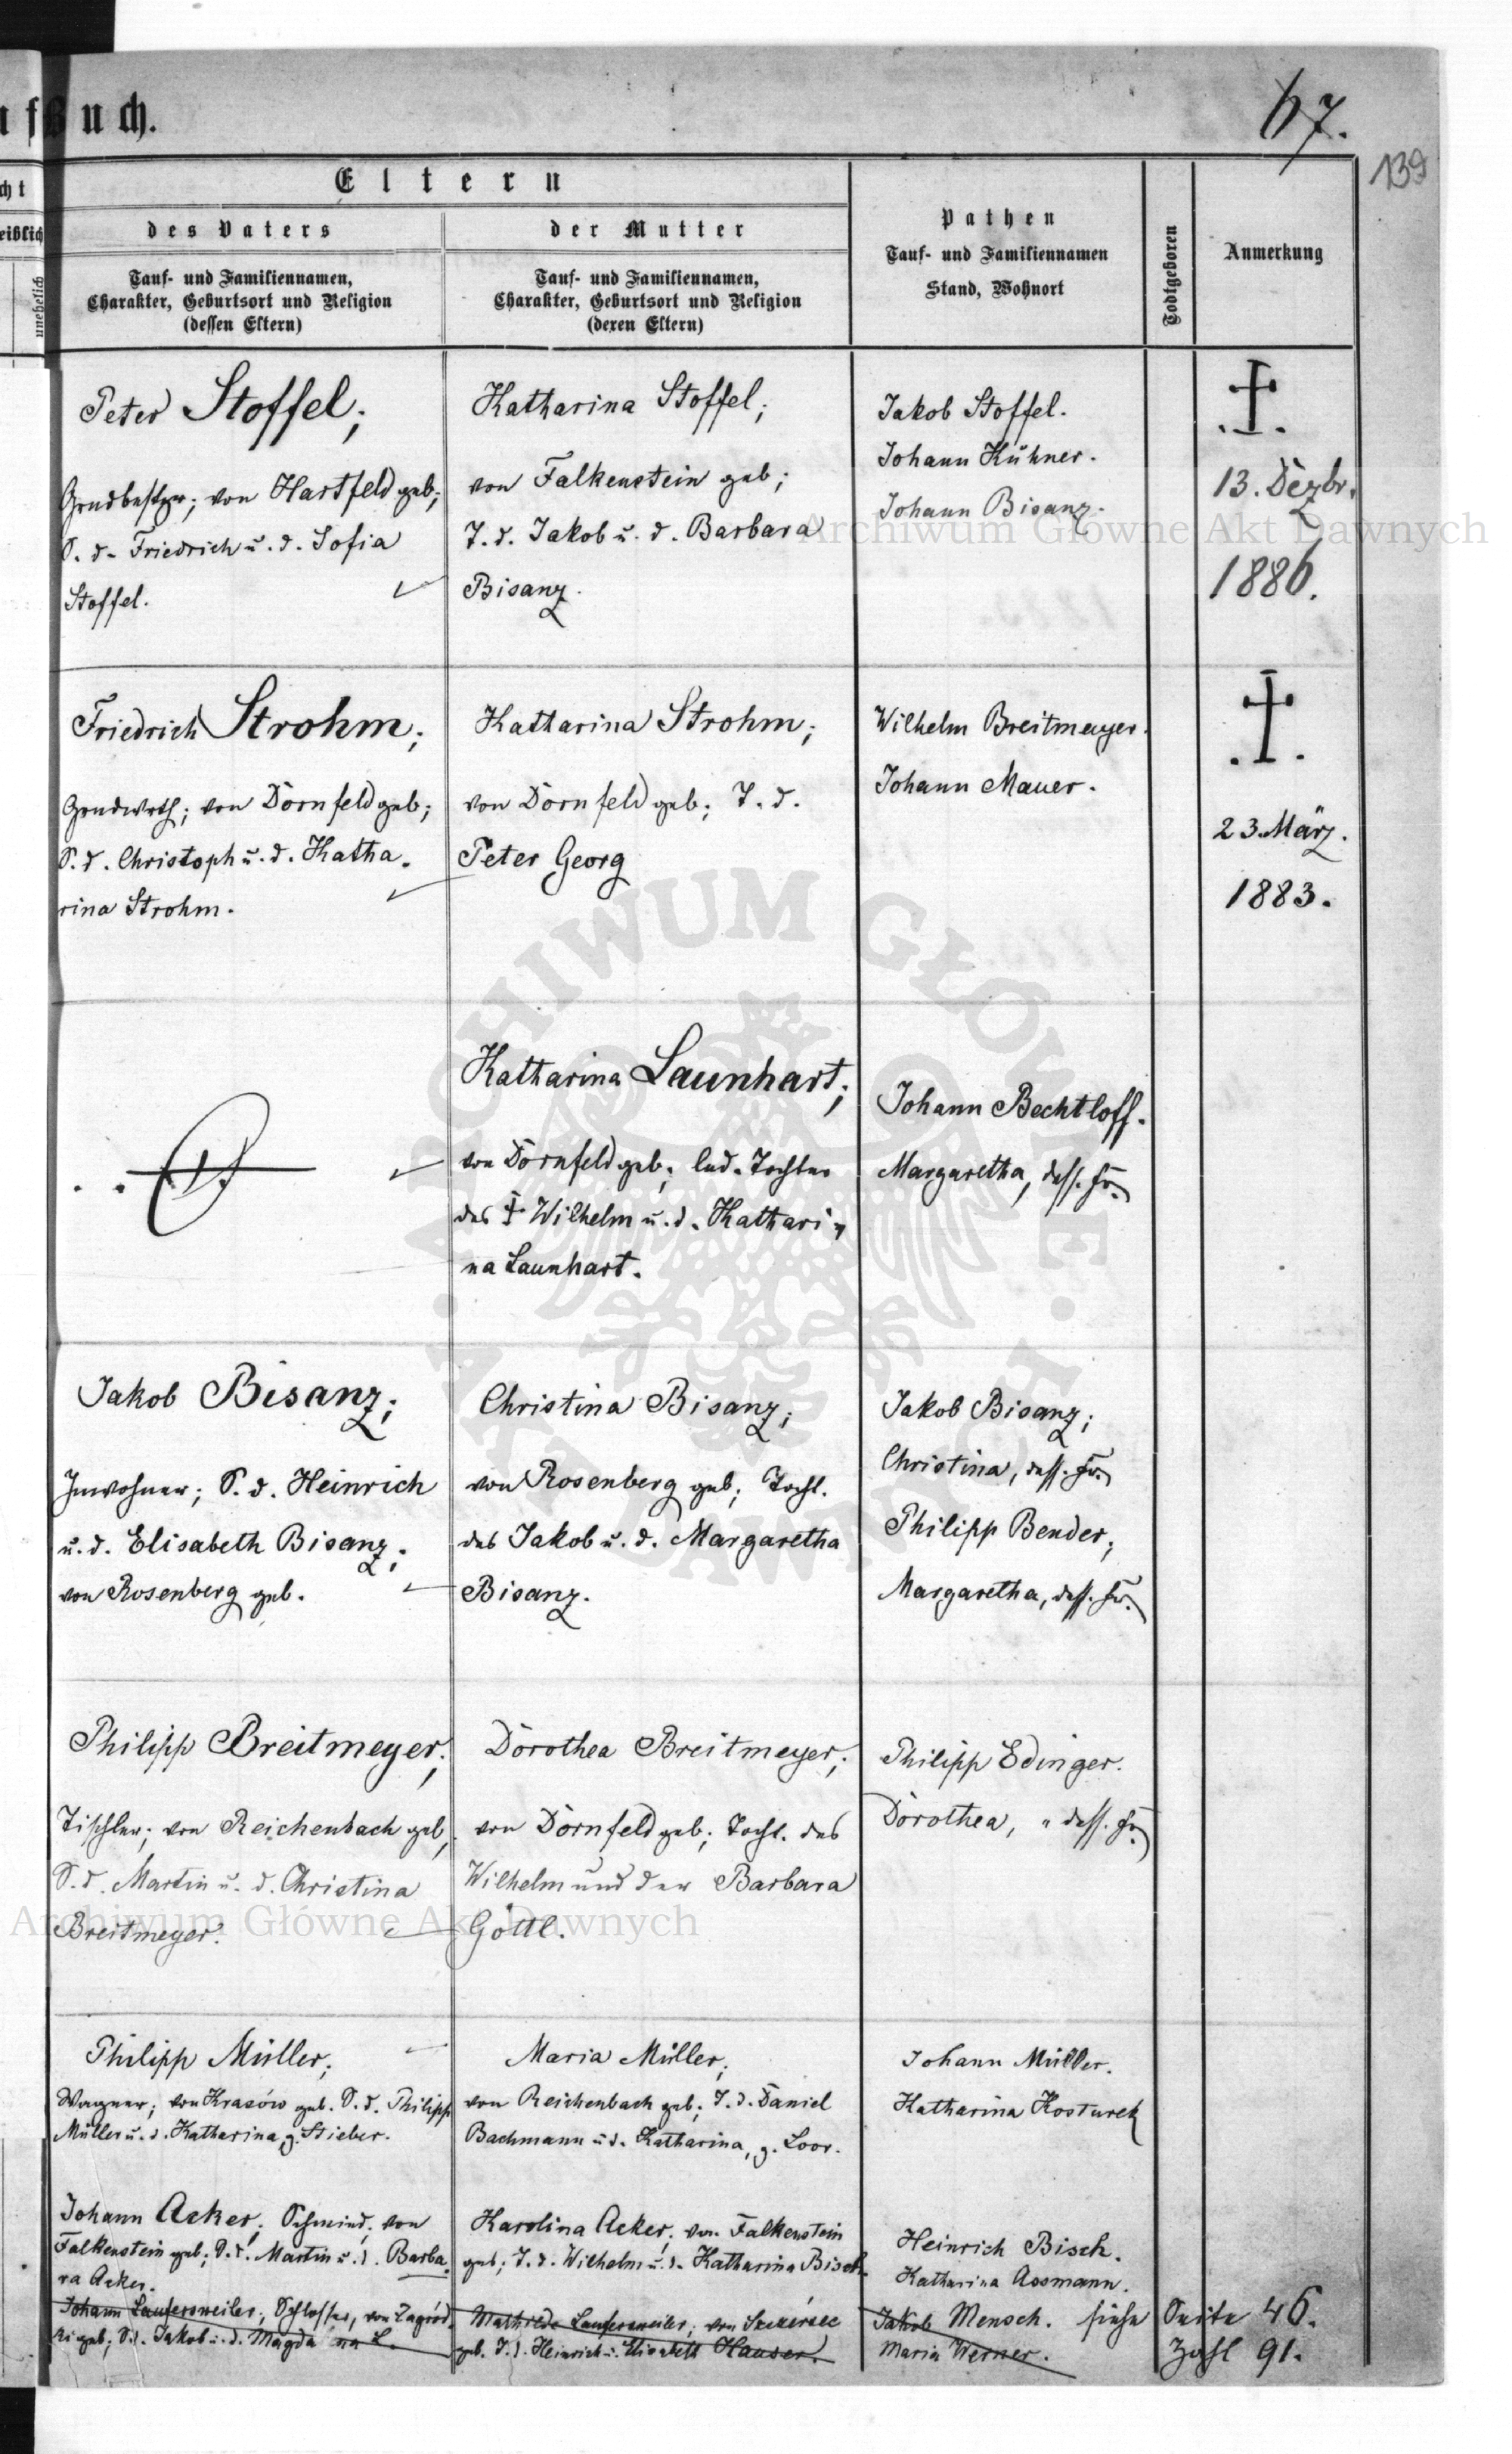 ufBuch.
67.
139
cht
eiblich
unehelich
Eltern
des Vaters
der Mutter
Tauf- und Familiennamen,
Charakter, Geburtsort und Religion
(dessen Eltern)
Tauf- und Familiennamen,
Charakter, Geburtsort und Religion
(deren Eltern)
Pathen
Tauf- und Familiennamen
Stand, Wohnort
Todtgeboren
Anmerkung
Peter Stoffel;
Grndbesitzer; von Hartfeld geb;
S. d. Friedrich u. d. Sofia
Stoffel.
Katharina Stoffel;
von Falkenstein geb;
T. d. Jakob u. d. Barbara
Bisanz.
Jakob Stoffel.
Johann Kühner.
Johann Bisanz.
13. Dezbr.
1886.
Friedrich Strohm;
Grndwrth; von Dornfeld geb;
S. d. Christoph u. d. Katha-
rina Strohm.
Katharina Strohm;
von Dornfeld geb; T. d.
Peter Georg
Wilhelm Breitmeyer.
Johann Mauer.
23. März.
1883.
Katharina Launhart;
von Dornfeld geb; led. Tochter
des † Wilhelm u. d. Kathari-
na Launhart.
Johann Bechtloff.
Margaretha, dess. Fr.
Jakob Bisanz;
Inwohner; S. d. Heinrich
u. d. Elisabeth Bisanz;
von Rosenberg geb.
Christina Bisanz;
von Rosenberg geb; Tocht.
des Jakob u. d. Margaretha
Bisanz.
Jakob Bisanz;
Christina, dess. Fr.
Philipp Bender;
Margaretha, dess. Fr.
Philipp Breitmeyer;
Tischler; von Reichenbach geb;
S. d. Martin u. d. Christina
Breitmeyer.
Dorothea Breitmeyer;
von Dornfeld geb; Tocht. des
Wilhelm und der Barbara
Göttl.
Philipp Edinger.
Dorothea, dess. Fr.
Philipp Müller;
Wagner; von Krasów geb. S. d. Philipp
Müller u. d. Katharina, g. Stieber.
Maria Müller;
von Reichenbach geb; T. d. Daniel
Bachmann u. d. Katharina, g. Loor.
Johann Müller.
Katharina Kosturek
Johann Acker; Schmied; von
Falkenstein geb; S. d. Martin u. d. Barba-
ra Acker.
Karolina Acker; von Falkenstein
geb; T. d. Wilhelm u. d. Katharina Bisch.
Heinrich Bisch.
Katharina Assmann.
Johann Laufersweiler; Schlosser, von Zagród-
ki geb; S. d. Jakob u. d. Magda na L.
Mathilde Laufersweiler; von Szczerzec
geb. T. d. Heinrich u. Elisabeth Hauser.
Jakob Mensch. siehe Seite 46.
Maria Werner. Zahl 91.
Archiwum Główne Akt Dawnych
Archiwum Główne Akt Dawnych
ARCHIWUM GŁÓWNE AKT DAWNYCH